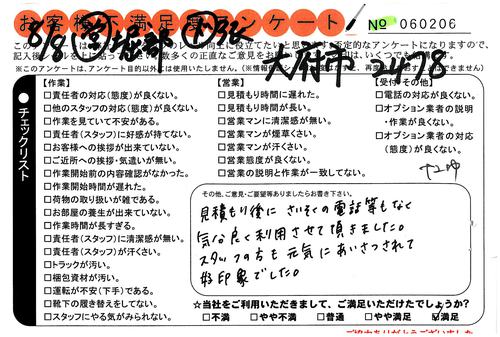 お客様不満足度アンケート!
No 060206
8/8 営 堀部
大府市 2478
【作業】
□責任者の対応(態度)が良くない。
□他のスタッフの対応(態度)が良くない。
□作業を見ていて不安がある。
□責任者(スタッフ)に好感が持てない。
□お客様への挨拶が出来ていない。
□ご近所への挨拶・気遣いが無い。
□作業開始前の内容確認がなかった。
□作業開始時間が遅れた。
□荷物の取り扱いが雑である。
□お部屋の養生が出来ていない。
□作業時間が長すぎる。
□責任者(スタッフ)に清潔感が無い。
□責任者(スタッフ)が汗くさい。
□トラックが汚い。
□梱包資材が汚い。
□運転が不安(下手)である。
□靴下の履き替えをしてない。
□スタッフにやる気がみられない。
チェックリスト
【営業】
□見積もり時間に遅れた。
□見積もり時間が長い。
□営業マンに清潔感が無い。
□営業マンが煙草くさい。
□営業マンが汗くさい。
□営業態度が良くない。
□営業の説明と作業が一致してない。
【受付・その他】
□電話の対応が良くない。
□オプション業者の説明
・作業が良くない。
□オプション業者の対応
(態度)が良くない。
その他、ご意見・ご要望等ありましたらお書き下さい。
見積もり後にさいそくの電話等もなく
気持良く利用させて頂きました。
スタッフの方も元気にあいさつされて
好印象でした。
☆当社をご利用いただきまして、ご満足いただけたでしょうか?
□不満 □やや不満 □普通 □やや満足 ☑満足
ご協力ありがとうございました